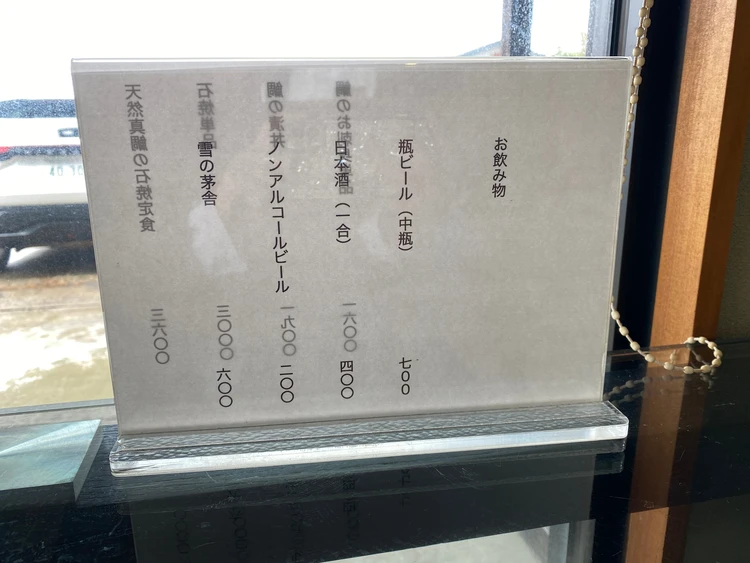 お飲み物
瓶ビール（中瓶） 七００
日本酒（一合） 四〇〇
ノンアルコールビール 二〇〇
雪の茅舎 六〇〇
鯛のお刺 品 一六〇〇
鯛の漬丼 一九〇〇
石焼単品 三〇〇〇
天然真鯛の石焼定食 三六〇〇